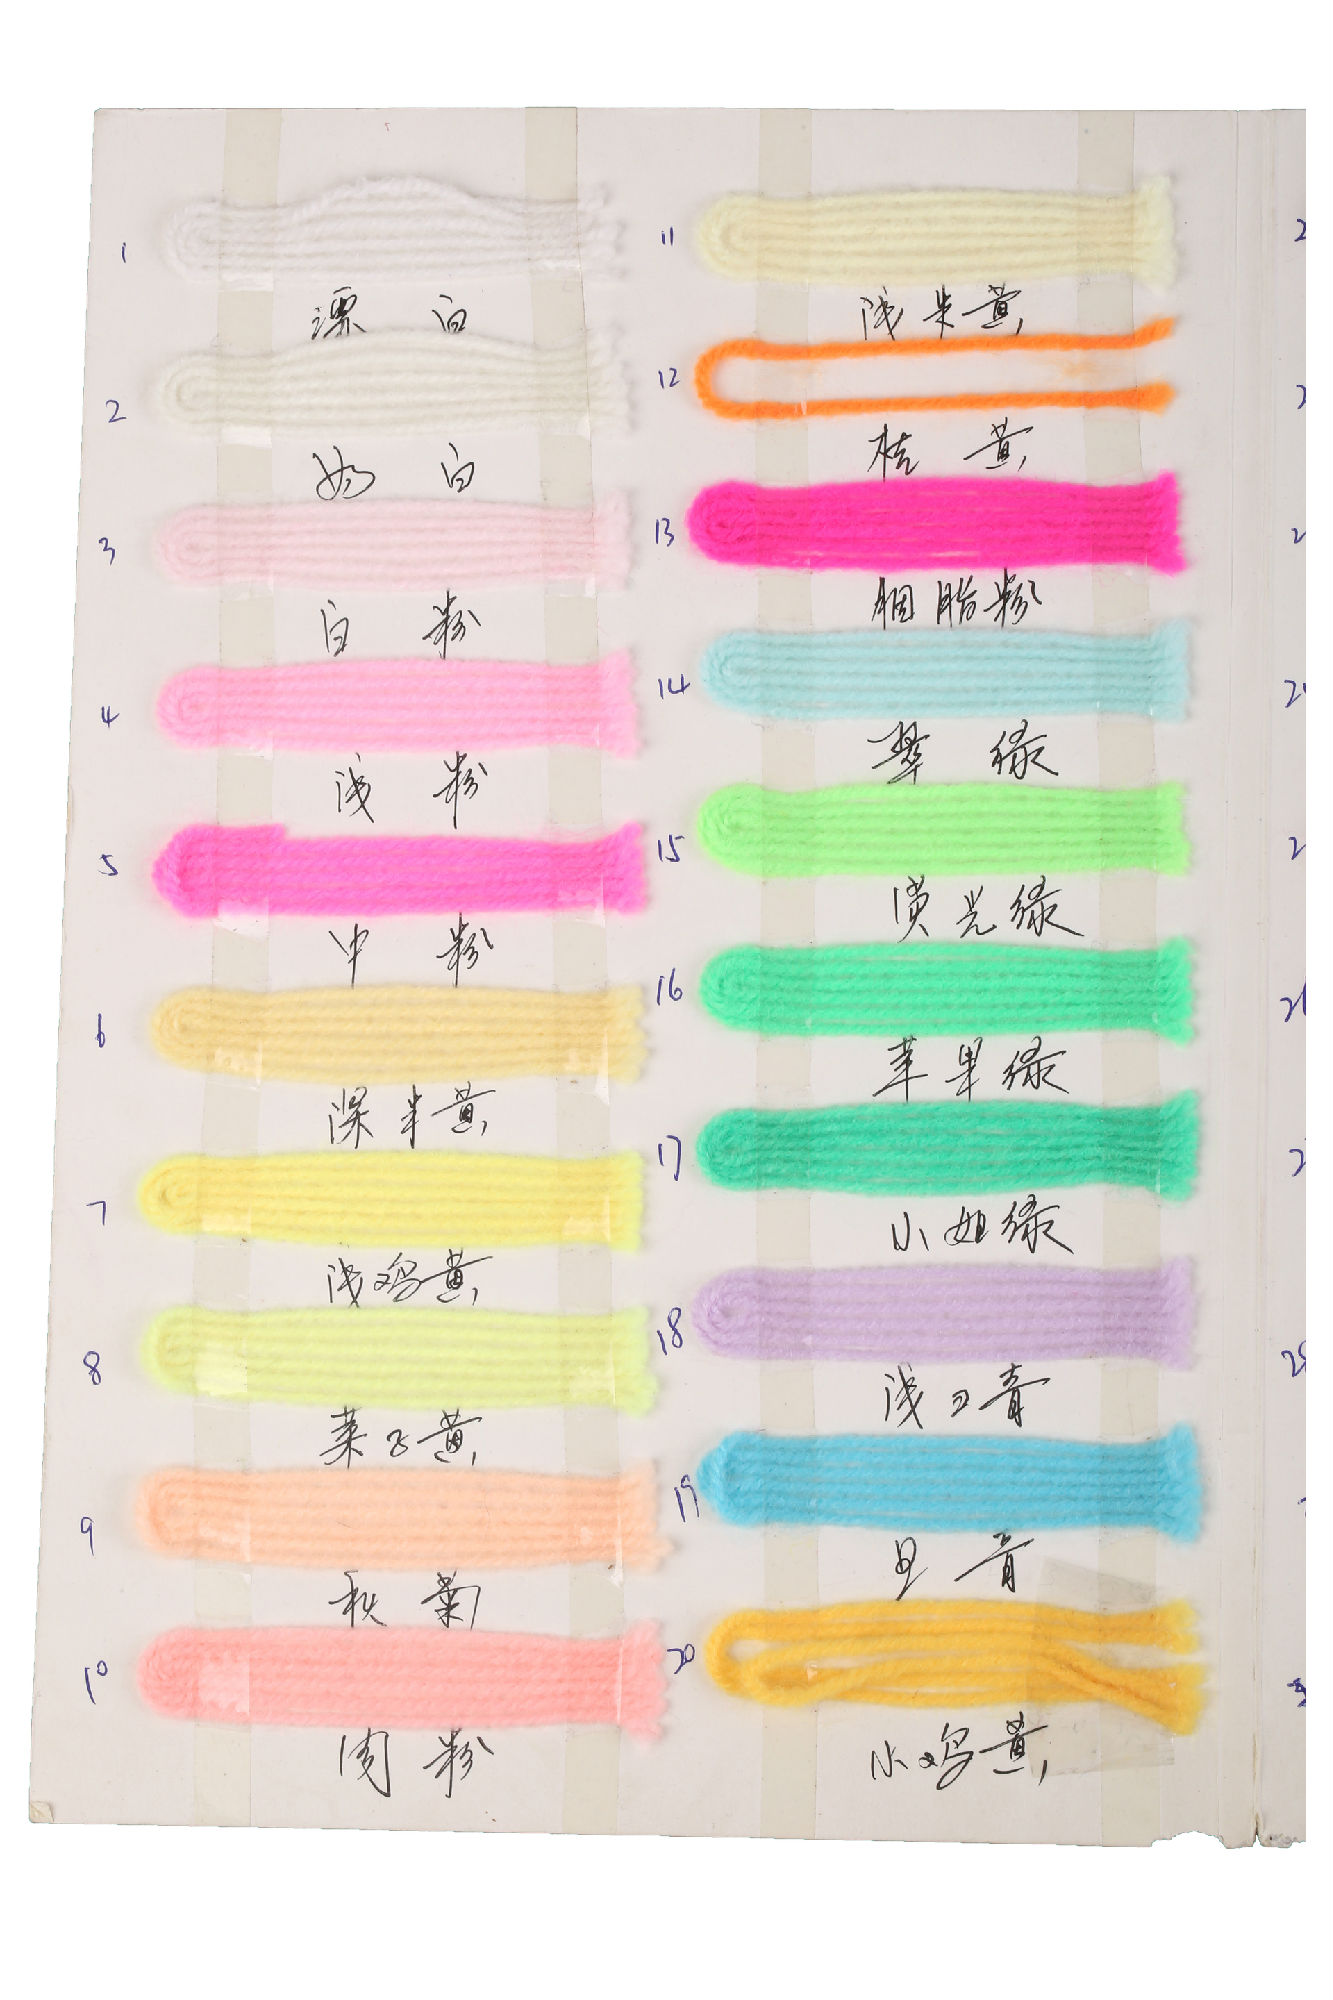 1
漂白
2
奶白
3
白粉
4
浅粉
5
中粉
6
深米黄
7
浅鸡黄
8
菜飞黄
9
秋菊
10
肉粉
11
浅米黄
12
桔黄
13
胭脂粉
14
翠绿
15
荧光绿
16
苹果绿
17
小姐绿
18
浅日青
19
青
20
小鸡黄